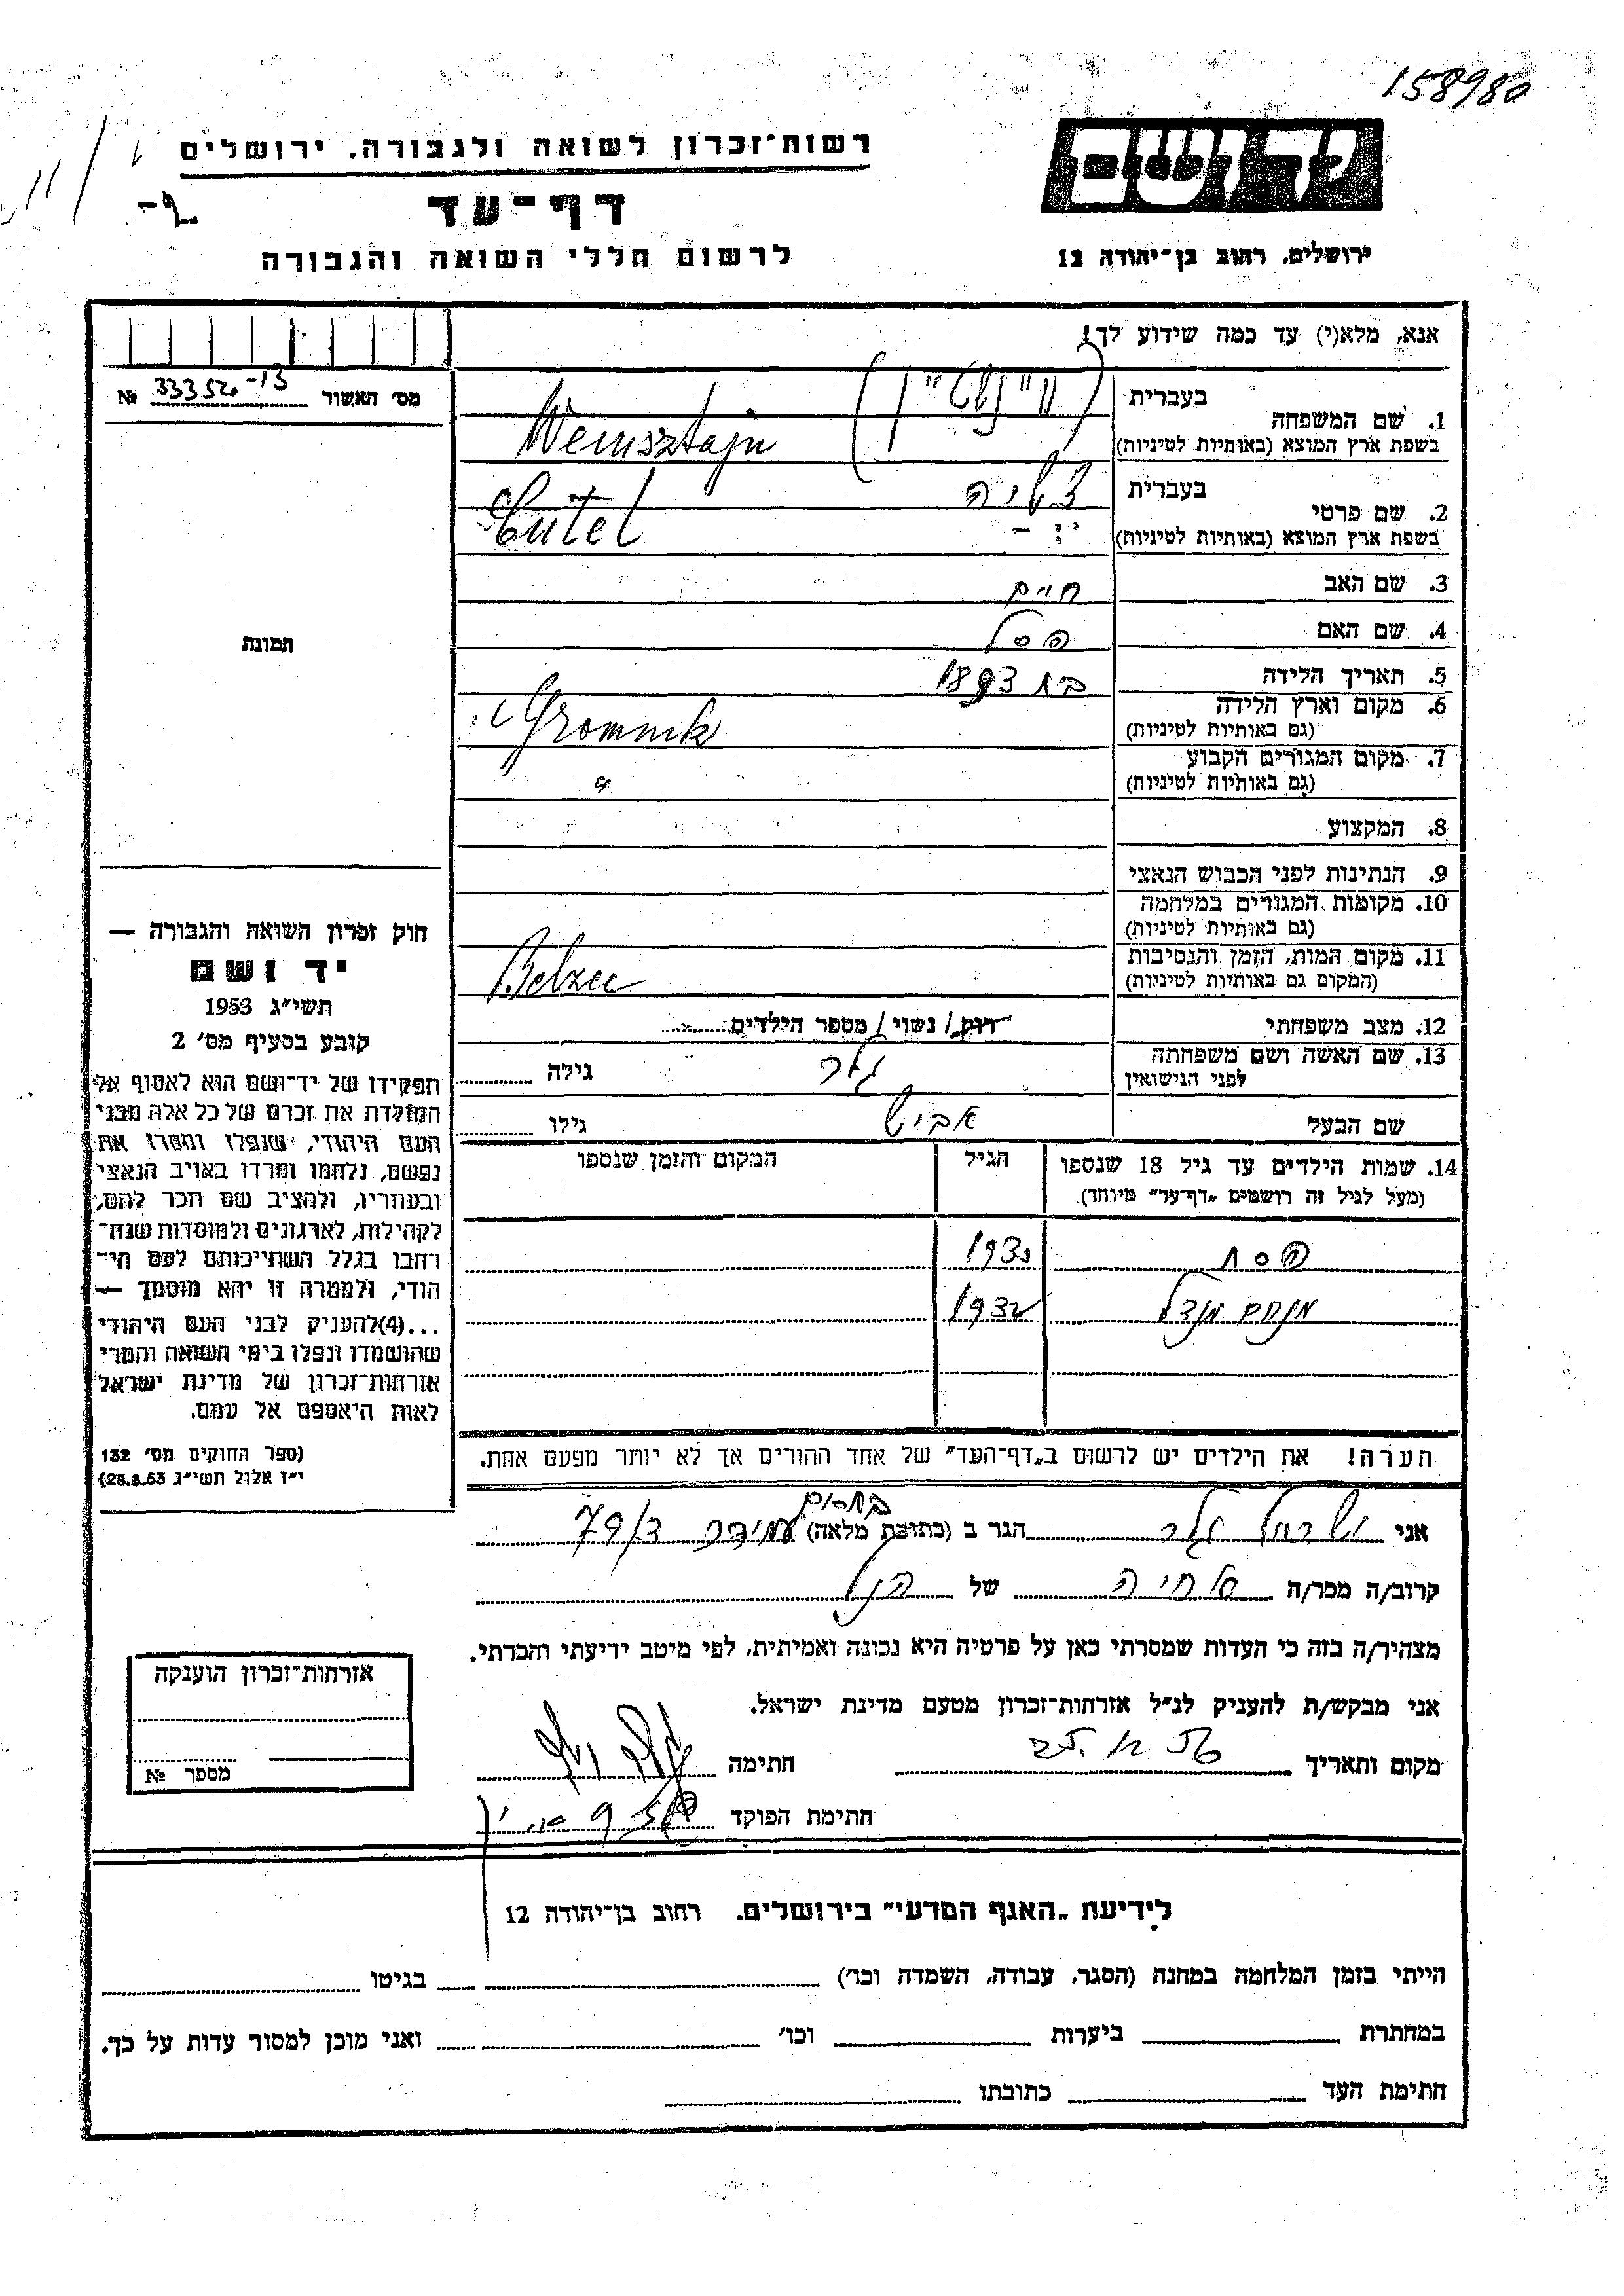 158980
רשות־זכרון לשואה ולגבורה, ירושלים
יד ושם
דף־עד
לרשום חללי השואה והגבורה
ירושלים, רחוב בן־יהודה 12
אנא, מלא(י) עד כמה שידוע לך!
מס׳ האשור № 333520-13
בעברית
1. שם המשפחה
בשפת ארץ המוצא (באותיות לטיניות) Weinsztajn
בעברית
2. שם פרטי
בשפת ארץ המוצא (באותיות לטיניות)
3. שם האב חיים
4. שם האם הסל
5. תאריך הלידה 1893
6. מקום וארץ הלידה
(גם באותיות לטיניות) Gromnik
7. מקום המגורים הקבוע
(גם באותיות לטיניות) "
8. המקצוע
9. הנתינות לפני הכבוש הנאצי
10. מקומות המגורים במלחמה
(גם באותיות לטיניות)
11. מקום המות, הזמן והנסיבות
(המקום גם באותיות לטיניות) Belzec
12. מצב משפחתי רוק/ נשוי/ מספר הילדים
13. שם האשה ושם משפחתה
לפני הנישואין גלר גילה
שם הבעל אביש גילו
14. שמות הילדים עד גיל 18 שנספו הגיל המקום והזמן שנספו
(מעל לגיל זה רושמים „דף־עד״ מיוחד).
פסח 1930
מנחם מנדל 1932
הערה! את הילדים יש לרשום ב„דף־העד״ של אחד ההורים אך לא יותר מפעם אחת.
תמונה
חוק זכרון השואה והגבורה —
יד ושם
תשי״ג 1953
קובע בסעיף מס׳ 2
תפקידו של יד־ושם הוא לאסוף אל
המולדת את זכרם של כל אלה מבני
העם היהודי, שנפלו ומסרו את
נפשם, נלחמו ומרדו באויב הנאצי
ובעוזריו, ולהציב שם וזכר להם,
לקהילות, לארגונים ולמוסדות שנח־
רחבו בגלל השתייכותם לעם הי־
הודי, ולמטרה זו יהא מוסמך —
...(4)להעניק לבני העם היהודי
שהושמדו ונפלו בימי השואה והמרי
אזרחות־זכרון של מדינת ישראל
לאות היאספם אל עמם.
(ספר החוקים מס׳ 132
י״ז אלול תשי״ג 28.8.53)
אני ישראל גלר הגר ב (כתובת מלאה) 79/3
קרוב/ה מכר/ה של הנ״ל
מצהיר/ה בזה כי העדות שמסרתי כאן על פרטיה היא נכונה ואמיתית, לפי מיטב ידיעתי והכרתי.
אני מבקש/ת להעניק לנ״ל אזרחות־זכרון מטעם מדינת ישראל.
מקום ותאריך חתימה
חתימת הפוקד
אזרחות־זכרון הוענקה
מספר №
לידיעת „האגף המדעי״ בירושלים, רחוב בן־יהודה 12
הייתי בזמן המלחמה במחנה (הסגר, עבודה, השמדה וכו׳) בגיטו
במחתרת ביערות וכו׳ ואני מוכן למסור עדות על כך.
חתימת העד כתובתו